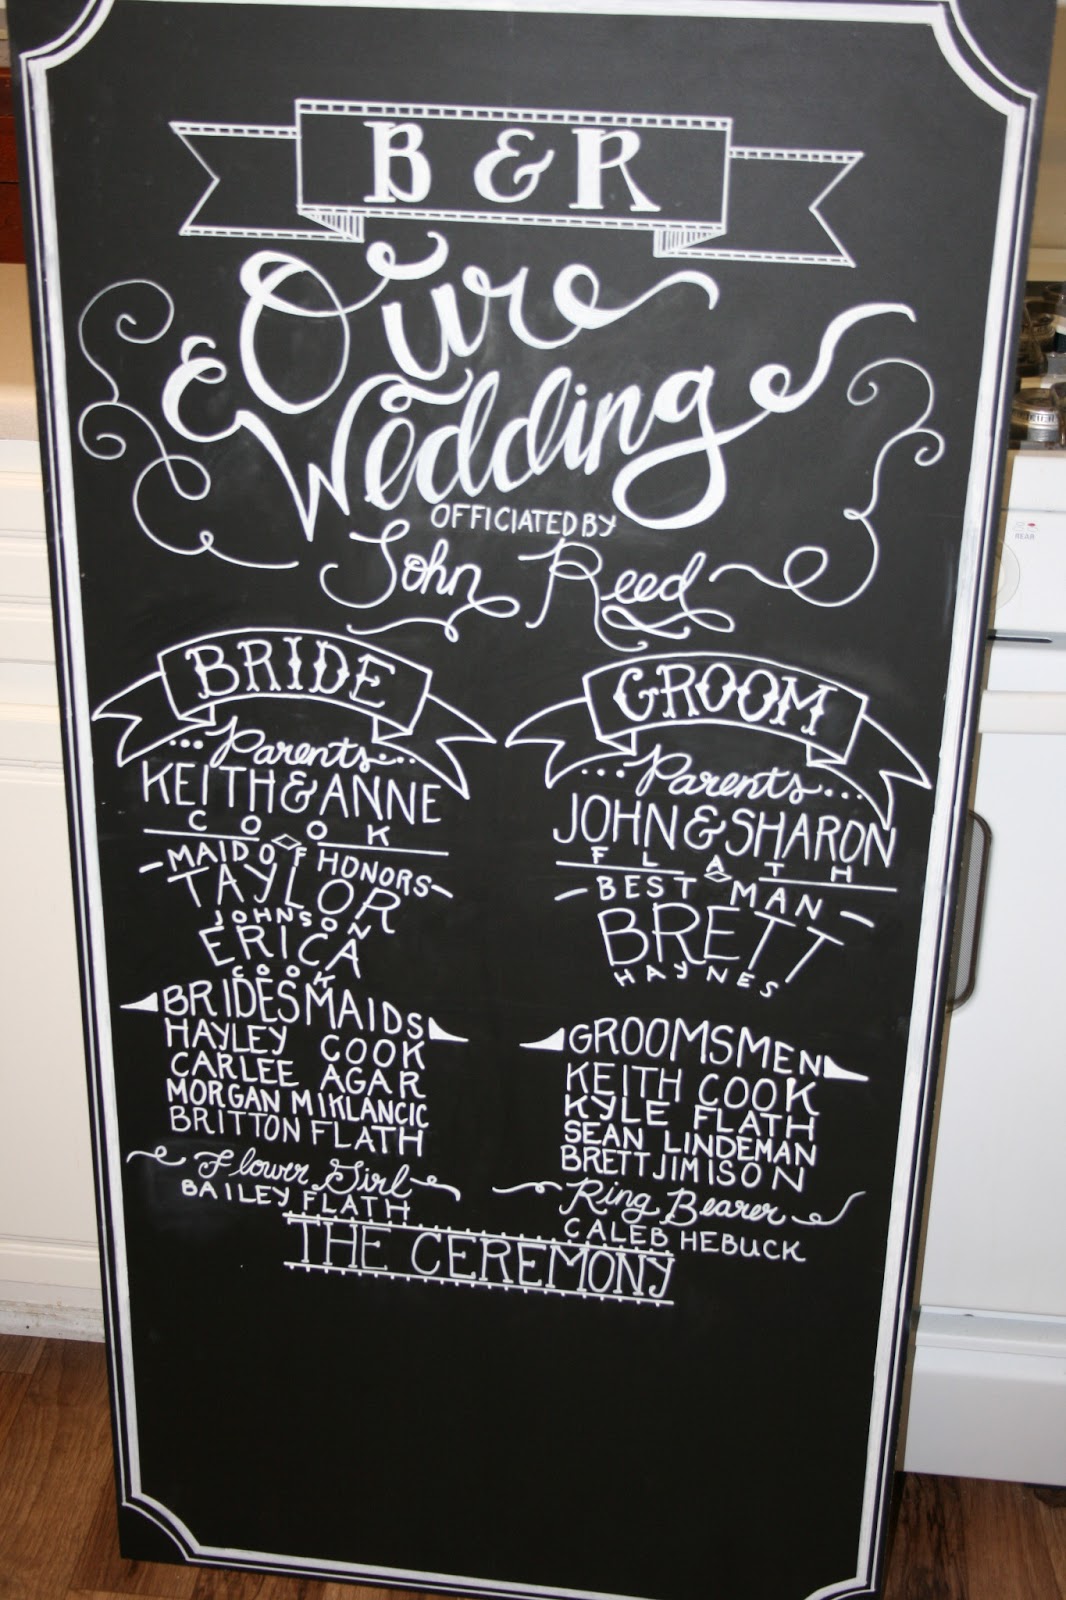 B & R
Our
Wedding
OFFICIATED BY
John Reed
BRIDE
...Parents...
KEITH & ANNE
COOK
MAID OF HONORS
TAYLOR
JOHNSON
ERICA
COOK
BRIDESMAIDS
HAYLEY COOK
CARLEE AGAR
MORGAN MIKLANCIC
BRITTON FLATH
Flower Girl
BAILEY FLATH
GROOM
...Parents...
JOHN & SHARON
FLATH
BEST MAN
BRETT
HAYNES
GROOMSMEN
KEITH COOK
KYLE FLATH
SEAN LINDEMAN
BRETT JIMISON
Ring Bearer
CALEB HEBUCK
THE CEREMONY
REAR